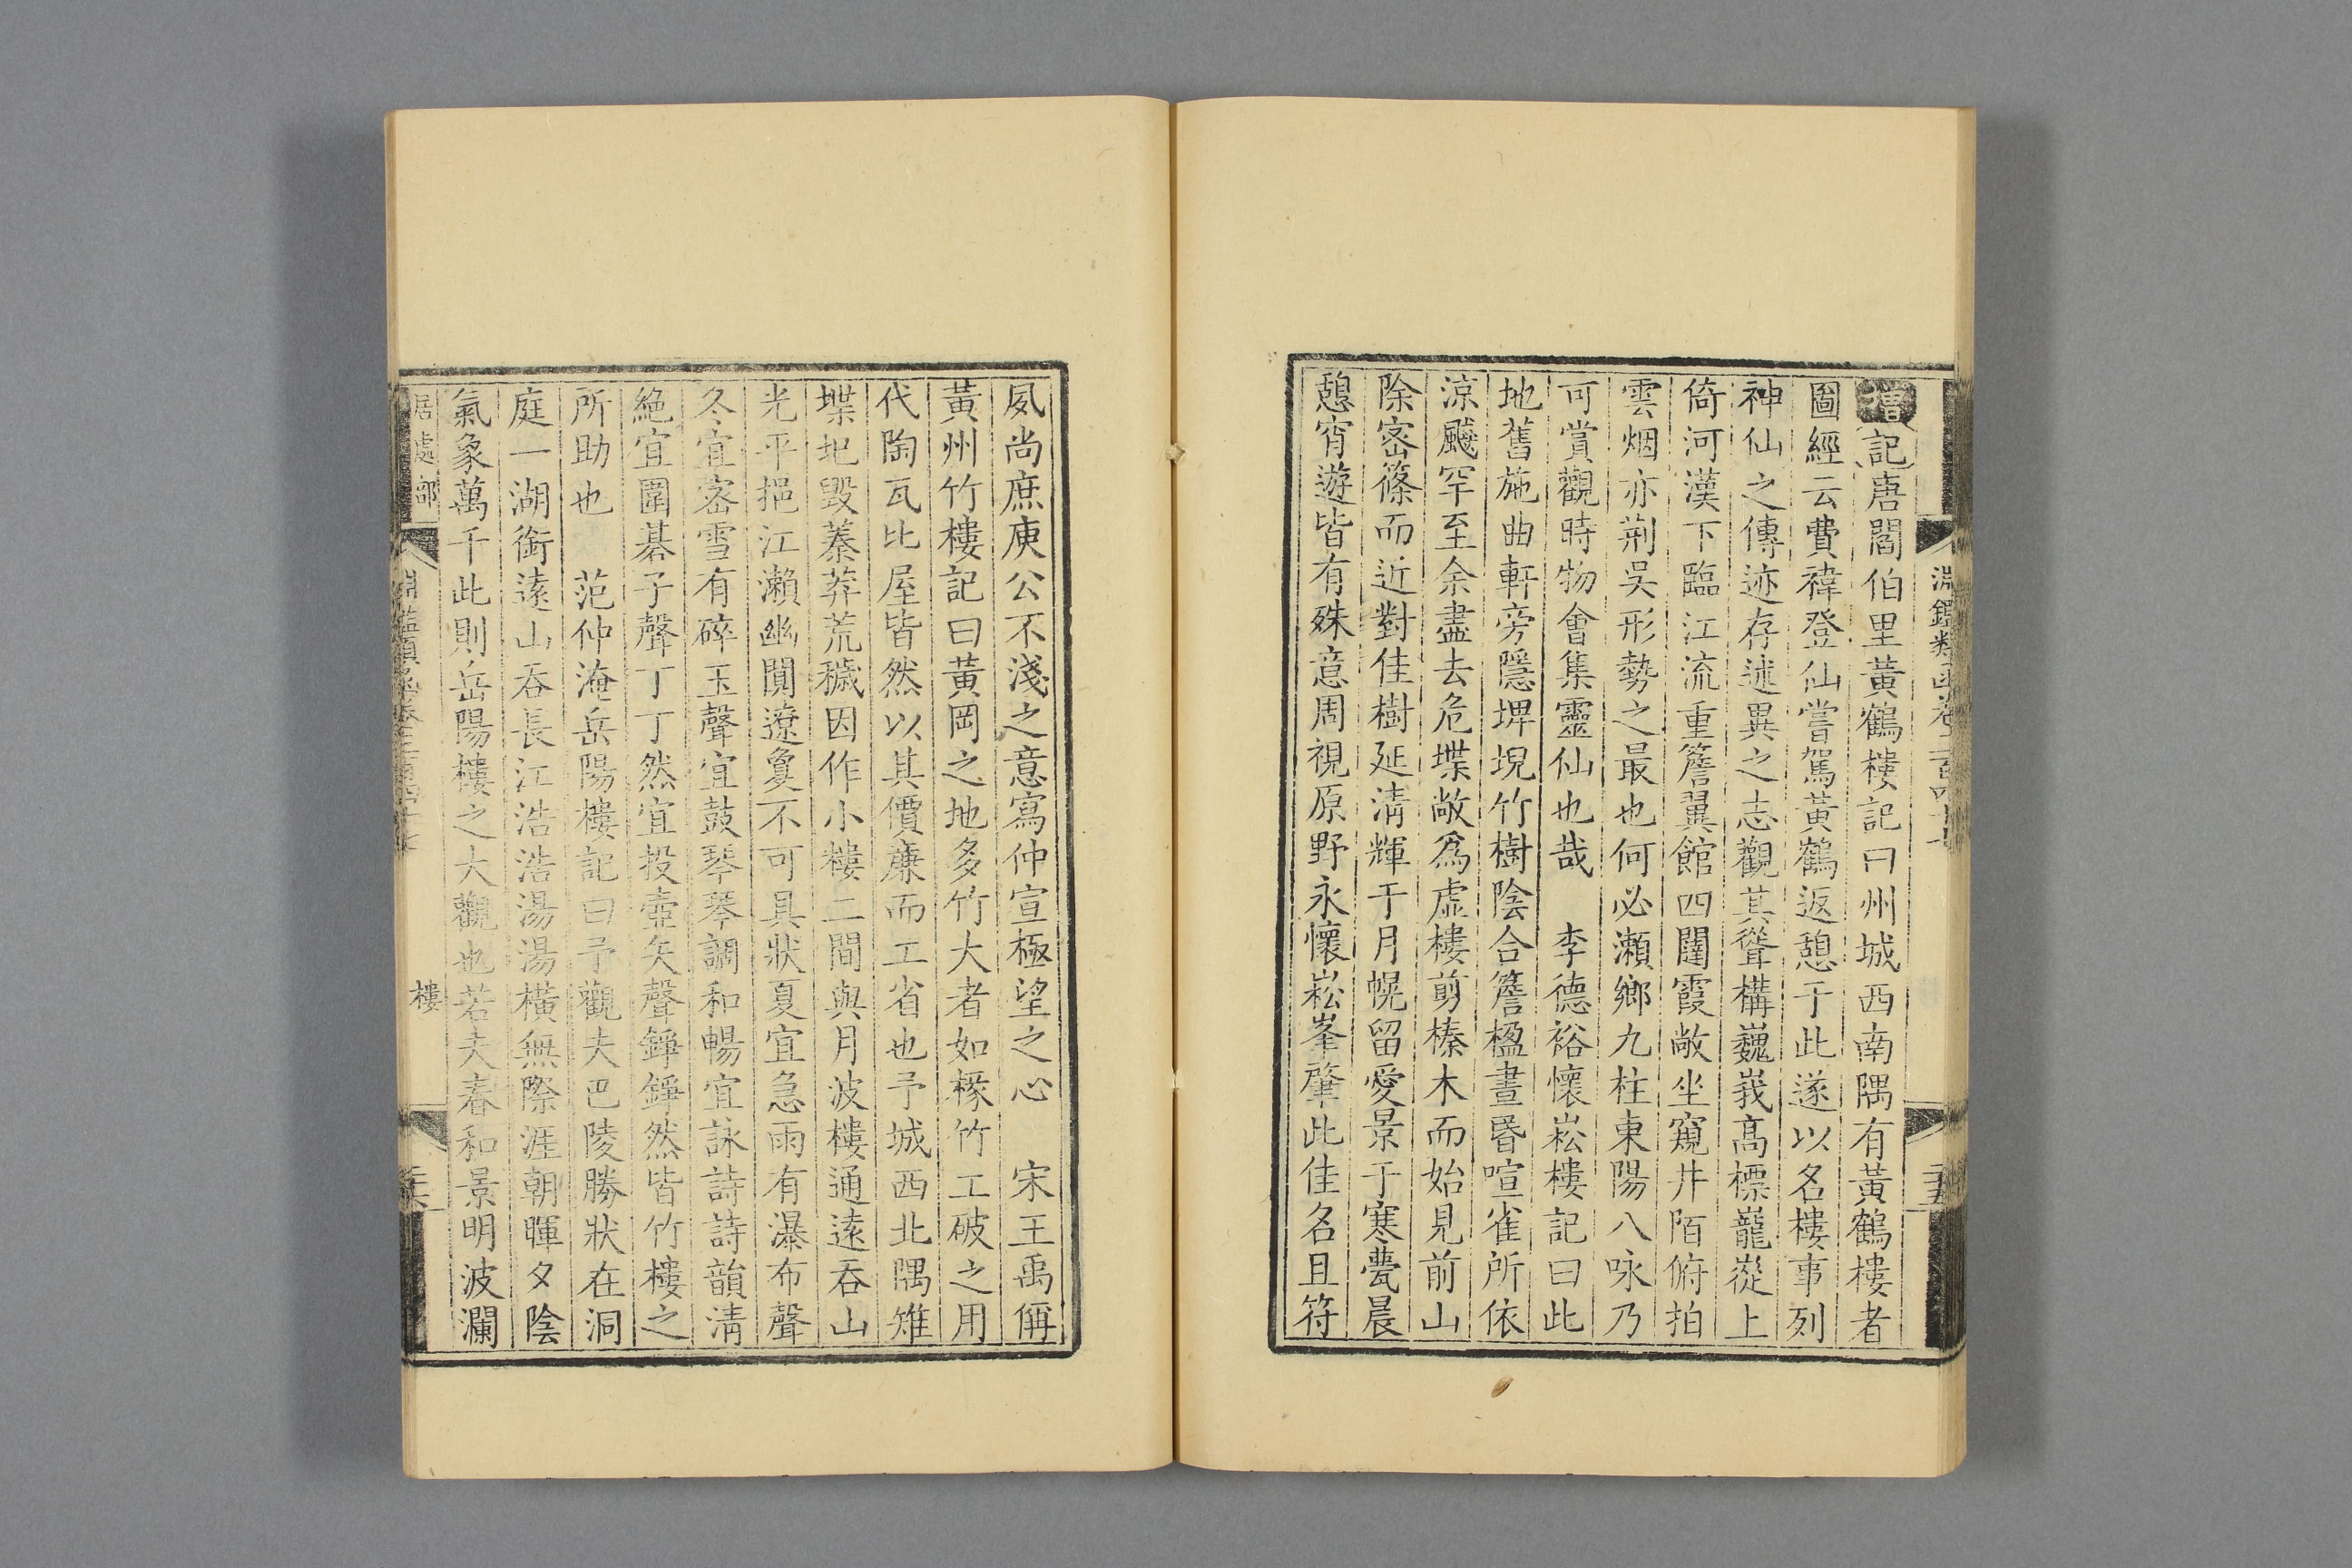 增記唐閻伯里黃鶴樓記曰州城西南隅有黃鶴樓者
圖經云費禕登仙嘗駕黃鶴返憩于此遂以名樓事列
神仙之傳迹存述異之志觀其聳構巍峩髙標巃嵷上
倚河漢下臨江流重簷翼館四闥霞敞坐窺井陌俯拍
雲烟亦荆吳形勢之最也何必瀨鄉九柱東陽八咏乃
可賞觀時物會集靈仙也哉　李德裕懷崧樓記曰此
地舊施曲軒旁隱埤堄竹樹陰合簷楹晝昬喧雀所依
涼飈罕至余盡去危堞敞爲虛樓剪榛木而始見前山
除宻篠而近對佳樹延清輝于月幌留愛景于寒甍晨
憩宵遊皆有殊意周視原野永懷崧峯肇此佳名且符
夙尚庶庾公不淺之意寫仲宣極望之心　宋王禹偁
黃州竹樓記曰黃岡之地多竹大者如椽竹工破之用
代陶瓦比屋皆然以其價廉而工省也予城西北隅雉
堞圮毁蓁莽荒穢因作小樓二間與月波樓通遠吞山
光平挹江瀨幽闃遼敻不可具狀夏宜急雨有瀑布聲
冬宜宻雪有碎玉聲宜鼓琴琴調和暢宜詠詩詩韻清
絶宜圍碁子聲丁丁然宜投壺矢聲錚錚然皆竹樓之
所助也　范仲淹岳陽樓記曰予觀夫巴陵勝狀在洞
庭一湖銜遠山吞長江浩浩湯湯橫無際涯朝暉夕陰
氣象萬千此則岳陽樓之大觀也若夫春和景明波瀾
居處部
樓